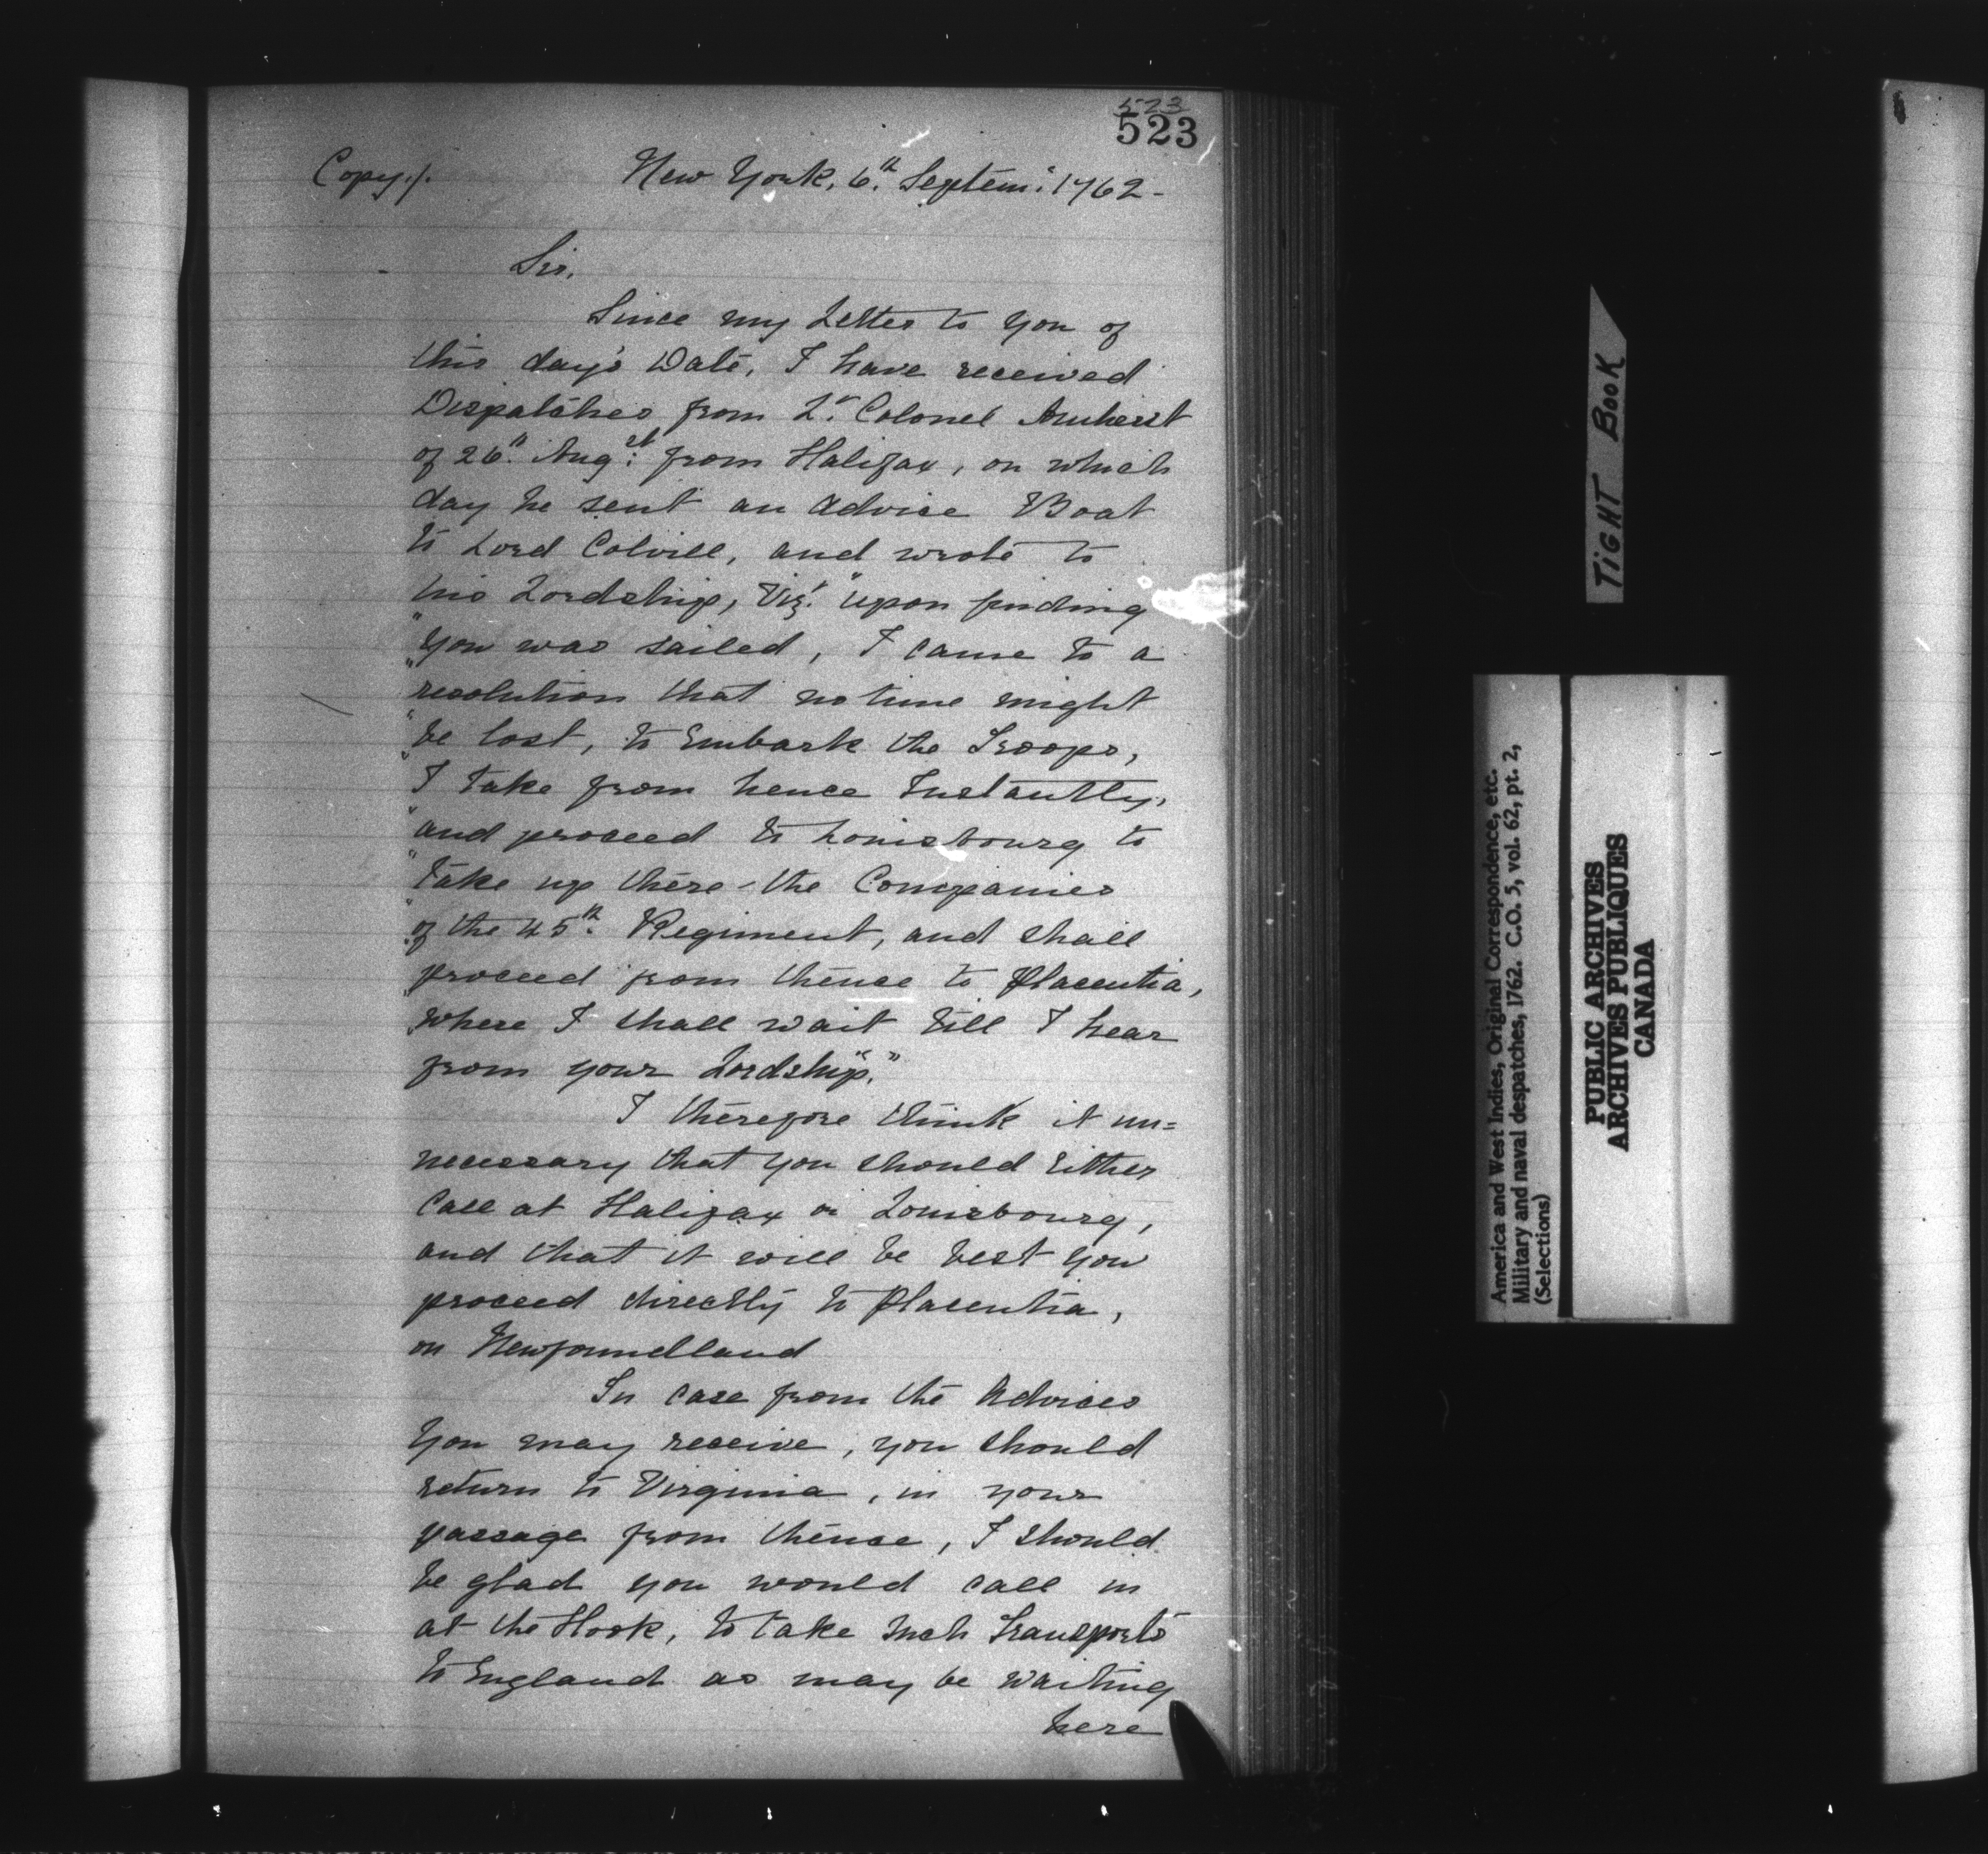 523
523
Copy./. New York, 6th. Septem: 1762-
Sir,
Since my Letter to you of
this day's Date, I have received
Dispatches from Lt. Colonel Amherst
of 26th. Augst: from Halifax, on which
day he sent an advice Boat
to Lord Colvill, and wrote to
his Lordship, Vizt. "upon finding
"you was sailed, I came to a
"resolution that no time might
"be lost, to Embark the Troops,
"I take from hence Instantly,
"and proceed to Louisbourg to
"take up there - the Companies
"of the 45th. Regiment, and shall
"proceed from thence to Placentia,
"where I shall wait till I hear
from your Lordship."
I therefore think it un=
necessary that you should Either
Call at Halifax or Louisbourg,
and that it will be best you
proceed directly to Placentia,
on Newfoundland
In case from the Advices
you may receive, you should
return to Virginia, in your
passage from thence, I should
be glad you would call in
at the Hook, to take such Transports
to England as may be waiting
here
TIGHT BOOK
America and West Indies, Original Correspondence, etc.
Military and naval despatches, 1762. C.O. 5, vol. 62, pt. 2,
(Selections)
PUBLIC ARCHIVES
ARCHIVES PUBLIQUES
CANADA